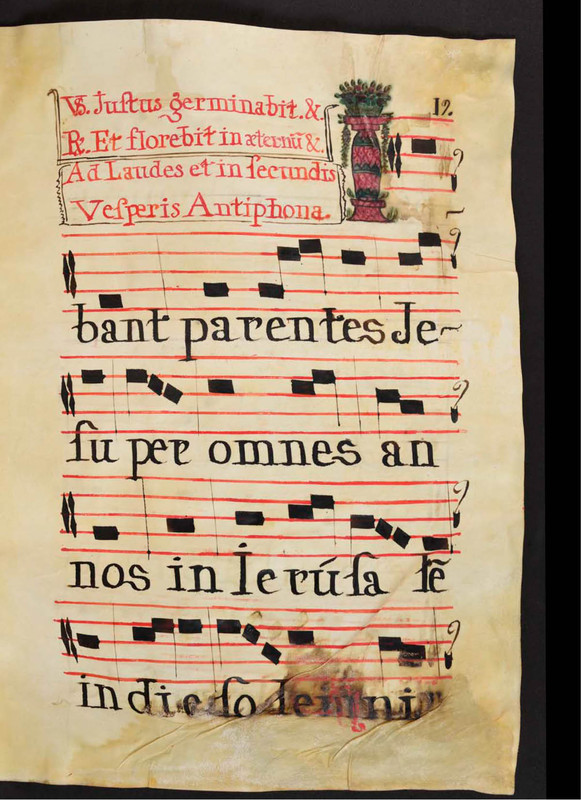 ℣. Justus germinabit. &.
℟. Et florebit in æternũ &.
Ad Laudes et in secundis
Vesperis Antiphona.
19.
I
bant parentes Je~
su per omnes an
nos in Ierúsa lẽ
in die so lemni